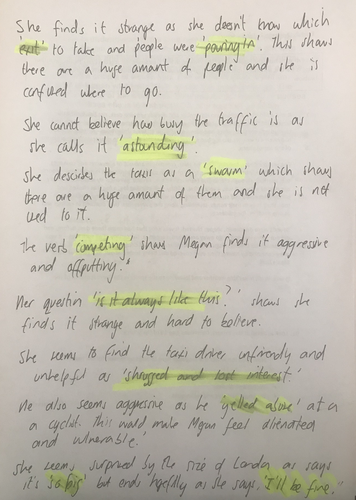 She finds it strange as she doesn't know which
'exit' to take and people were 'pouring in'. This shows
there are a huge amount of people and she is
confused were to go.
She cannot believe how busy the traffic is as
she calls it 'astounding'.
She descides the taxis as a 'swarm' which shows
there are a huge amount of them and she is not
used to it.
The verb 'competing' shows Megan finds it aggressive
and offputting."
Her question 'is it always like this?' shows she
finds it strange and hard to believe.
She seems to find the taxi driver unfriendly and
unhelpful as 'shrugged and lost interest.'
He also seems aggressive as he 'yelled abuse' at a
a cyclist. This would make Megan feel alienated
and vulnerable.'
She seems surprised by the size of London as says
it's 'so big' but ends hopefully as she says, 'I'll be fine."